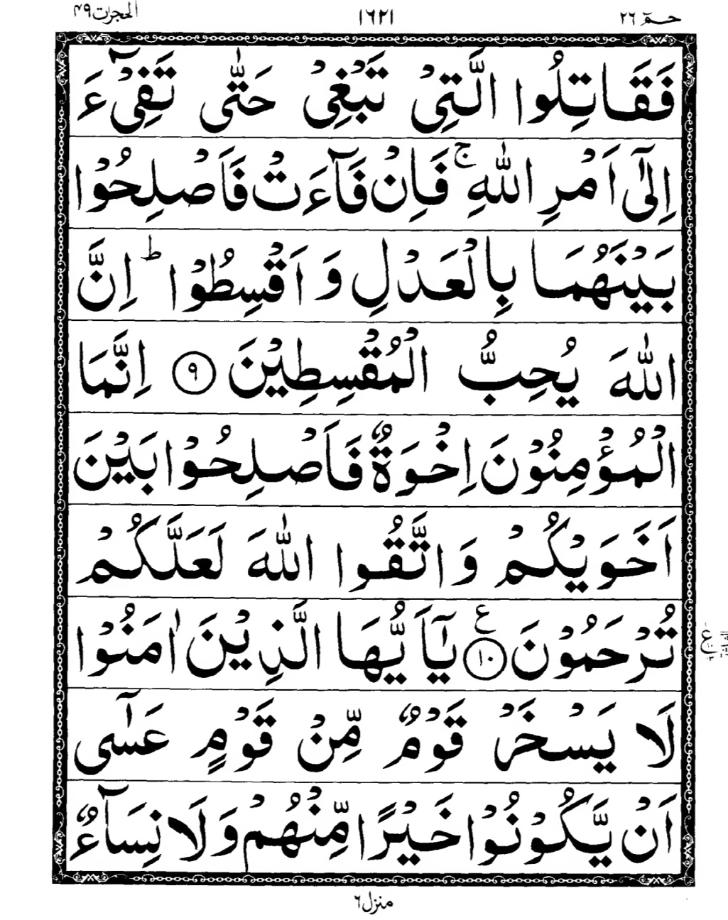 حٰمٓ ٢٦ ١٦٢١ الحجرات ٤٩
فَقَاتِلُوا الَّتِیْ تَبْغِیْ حَتّٰی تَفِیْٓءَ
اِلٰۤی اَمْرِ اللّٰهِ ۚ فَاِنْ فَآءَتْ فَاَصْلِحُوْا
بَیْنَهُمَا بِالْعَدْلِ وَ اَقْسِطُوْا ؕ اِنَّ
اللّٰهَ یُحِبُّ الْمُقْسِطِیْنَ ۹ اِنَّمَا
الْمُؤْمِنُوْنَ اِخْوَةٌ فَاَصْلِحُوْا بَیْنَ
اَخَوَیْكُمْ وَ اتَّقُوا اللّٰهَ لَعَلَّكُمْ
تُرْحَمُوْنَ ۱۰ ع یٰۤاَیُّهَا الَّذِیْنَ اٰمَنُوْا
لَا یَسْخَرْ قَوْمٌ مِّنْ قَوْمٍ عَسٰۤی
اَنْ یَّكُوْنُوْا خَیْرًا مِّنْهُمْ وَ لَا نِسَآءٌ
منزل ٦